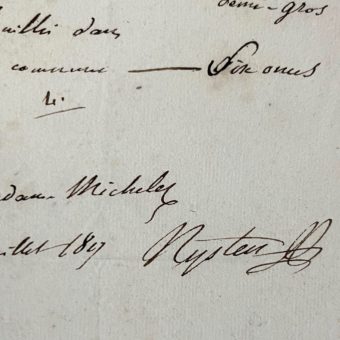 demi-gros
cueilli dans
commune — Six onces
4.
dame Michelez
juillet 1817
Nysten